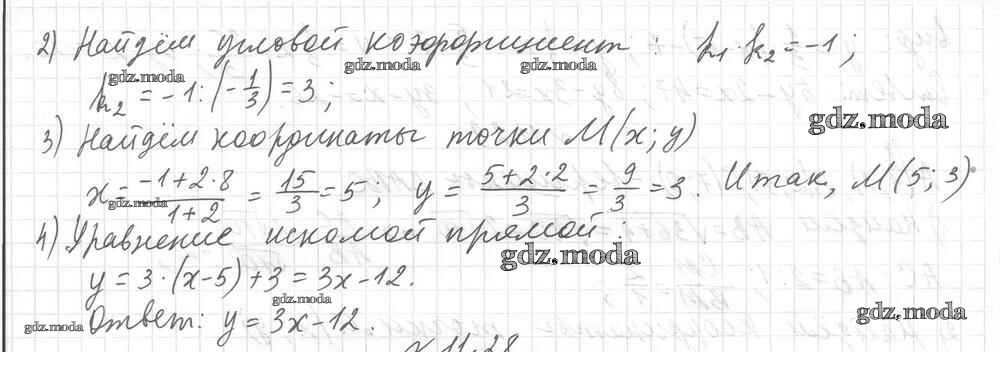 2) Найдём угловой коэффициент : k₁·k₂ = -1 ;
k₂ = -1 : (-1/3) = 3 ;
3) Найдём координаты точки M(x; y)
x = (-1+2·8)/(1+2) = 15/3 = 5 ; y = (5+2·2)/3 = 9/3 = 3. Итак, M(5; 3)
4) Уравнение искомой прямой :
y = 3·(x-5)+3 = 3x-12.
Ответ: y = 3x-12.
gdz.moda
gdz.moda
gdz.moda
gdz.moda
gdz.moda
gdz.moda
gdz.moda
gdz.moda
gdz.moda